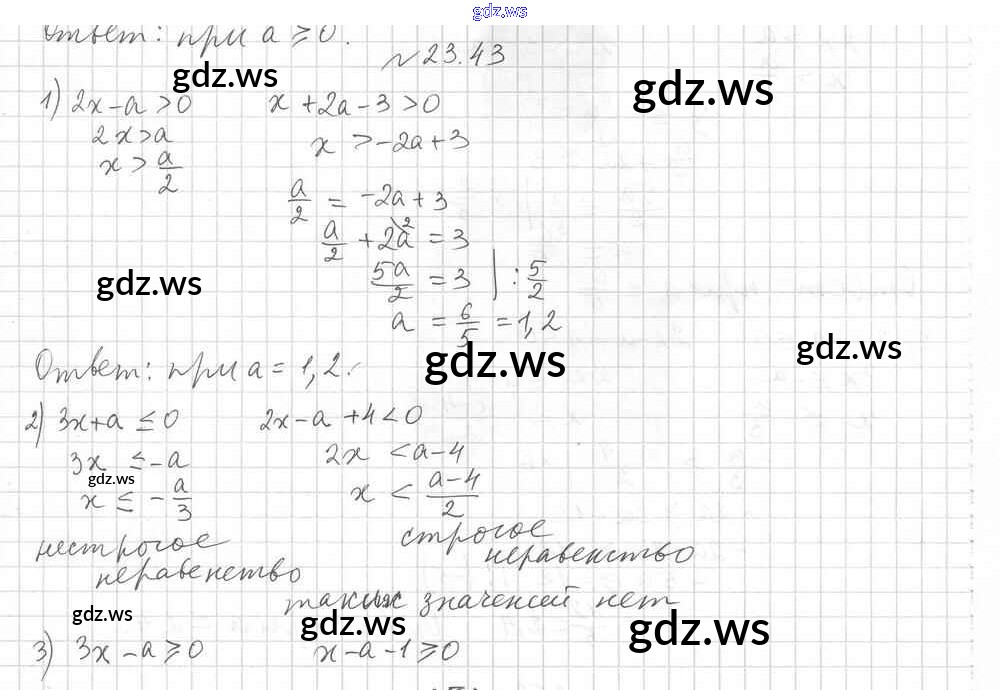 gdz.ws
Ответ: при a ≥ 0.
№ 23.43
gdz.ws gdz.ws
1) 2x - a > 0 x + 2a - 3 > 0
2x > a x > -2a + 3
x > a/2
a/2 = -2a + 3
a/2 + 2a^2 = 3
gdz.ws 5a/2 = 3 | : 5/2
a = 6/5 = 1,2
gdz.ws gdz.ws
Ответ: при a = 1,2.
2) 3x + a ≤ 0 2x - a + 4 < 0
3x ≤ -a 2x < a - 4
gdz.ws
x ≤ - a/3 x < (a-4)/2
нестрогое строгое
неравенство неравенство
таких значений нет
gdz.ws gdz.ws gdz.ws
3) 3x - a ≥ 0 x - a - 1 ≥ 0